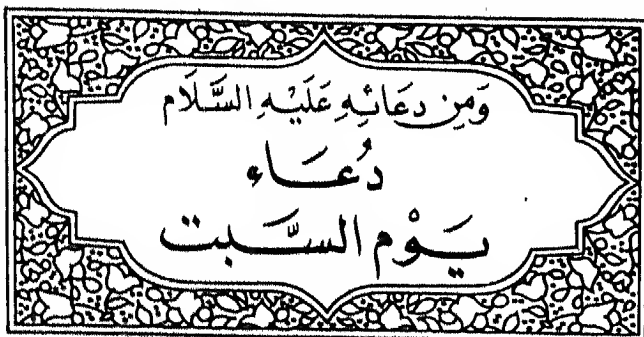 وَمِن دعَائِهِ عَلَيْهِ السَّلَام
دُعَاء
يَوْم السَّبت